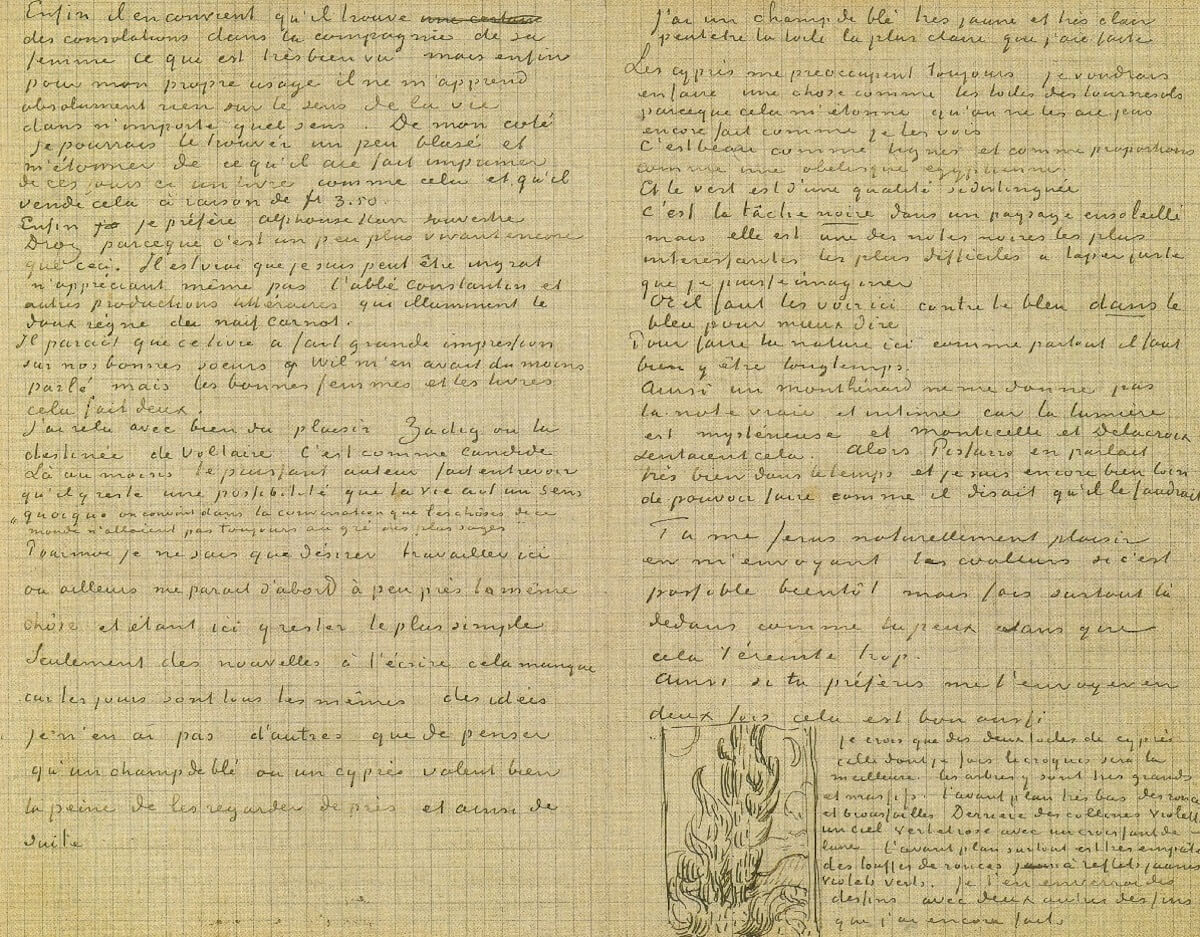 Enfin il en convient qu'il trouve une certaine
des consolations dans la compagnie de sa
femme ce que est très bien vu mais enfin
pour mon propre usage il ne m'apprend
absolument rien sur le sens de la vie
dans n'importe quel sens. De mon coté
je pourrais le trouver un peu blasé et
m'étonner de ce qu'il aie fait imprimer
de ces jours ci un livre comme cela et qu'il
vende cela à raison de fr 3.50.
Enfin je préfère alphonse Karr souvestre
Droz parceque c'est un peu plus vivant encore
que ceci. Il est vrai que je suis peut être ingrat
n'appréciant même pas l'abbé constantin et
autres productions littéraires qui illuminent le
doux règne du naif Carnot.
Il parait que ce livre a fait grande impression
sur nos bonnes soeurs Wil m'en avait du moins
parlé mais les bonnes femmes et les livres
cela fait deux.
J'ai relu avec bien du plaisir Zadig ou la
destinée de Voltaire C'est comme candide
Là au moins le puissant auteur fait entrevoir
qu'il y reste une possibilité que la vie ait un sens
"quoique on convint dans la conversation que les choses de ce
monde n'allaient pas toujours au gré des plus sages"
Pour moi je ne sais que désirer travailler ici
ou ailleurs me parait d'abord à peu près la même
chose et étant ici y rester le plus simple
Seulement des nouvelles à t'écrire cela manque
car les jours sont tous les mêmes des idées
je n'en ai pas d'autres que de penser
qu'un champ de blé ou un cyprès valent bien
la peine de les regarder de près et ainsi de
suite
J'ai un champ de blé très jaune et très clair
peutetre la toile la plus claire que j'aie faite
Les cyprès me préoccupent toujours je voudrais
en faire une chose comme les toiles des tournesols
parceque cela m'étonne qu'on ne les aie pas
encore fait comme je les vois
C'est beau comme lignes et comme proportions
comme une obelisque egyptienne
Et le vert est d'une qualité si distinguée
C'est la tâche noire dans un paysage ensoleillé
mais elle est une des notes noires les plus
interessantes les plus difficiles à taper juste
que je puisse imaginer
Or il faut les voir ici contre le bleu dans le
bleu pour mieux dire
Pour faire la nature ici comme partout il faut
bien y être longtemps.
Ainsi un monthénard ne me donne pas
la note vraie et intime car la lumière
est mystérieuse et Monticelli et Delacroix
sentaient cela. Alors Pissarro en parlait
très bien dans le temps et je suis encore bien loin
de pouvoir faire comme il disait qu'il le faudrait
Tu me feras naturellement plaisir
en m'envoyant les couleurs si c'est
possible bientôt mais fais surtout là
dedans comme tu peux sans que
cela t'éreinte trop.
Ainsi si tu préfères me l'envoyer en
deux fois cela est bon aussi
Je crois que des deux toiles de cyprès
celle dont je fais le croquis sera la
meilleure. les arbres y sont très grands
et massifs. l'avant plan très bas des ronces
et broussailles Derrière des collines violettes
un ciel vert et rose avec un croissant de
lune L'avant plan surtout est très empaté
des touffes de ronces à reflets jaunes
violets verts. Je t'en enverrai des
dessins avec deux autres dessins
que j'ai encore faits